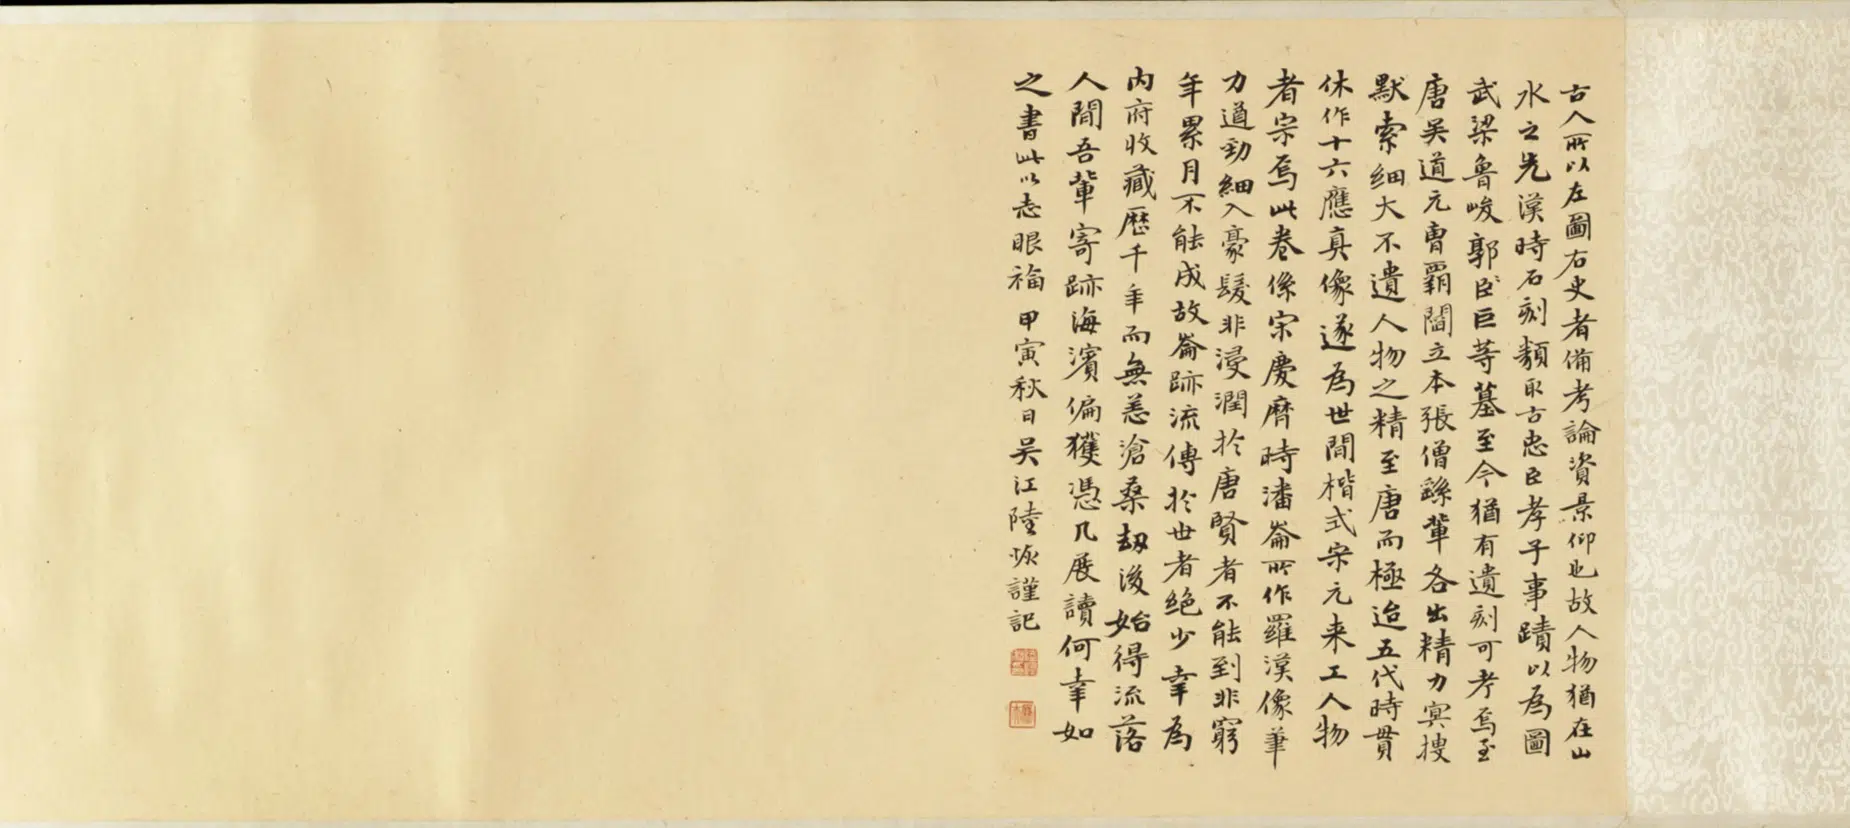 古人所以左圖右史者備考論資景仰也故人物猶在山
水之先漢時石刻類取古忠臣孝子事蹟以為圖
武梁魯峻郭臣巨等墓至今猶有遺刻可考焉至
唐吴道元曹霸閻立本張僧繇輩各出精力冥搜
默索細大不遺人物之精至唐而極迨五代時貫
休作十六應真像遂為世間楷式宋元来工人物
者宗焉此卷係宋慶曆時潘崙所作羅漢像筆
力遒勁細入豪髮非浸潤於唐賢者不能到非窮
年累月不能成故崙跡流傳於世者絶少幸為
内府收藏歷千年而無恙滄桑劫後始得流落
人間吾輩寄跡海濱偏獲憑几展讀何幸如
之書此以志眼福 甲寅秋日吴江陸恢謹記